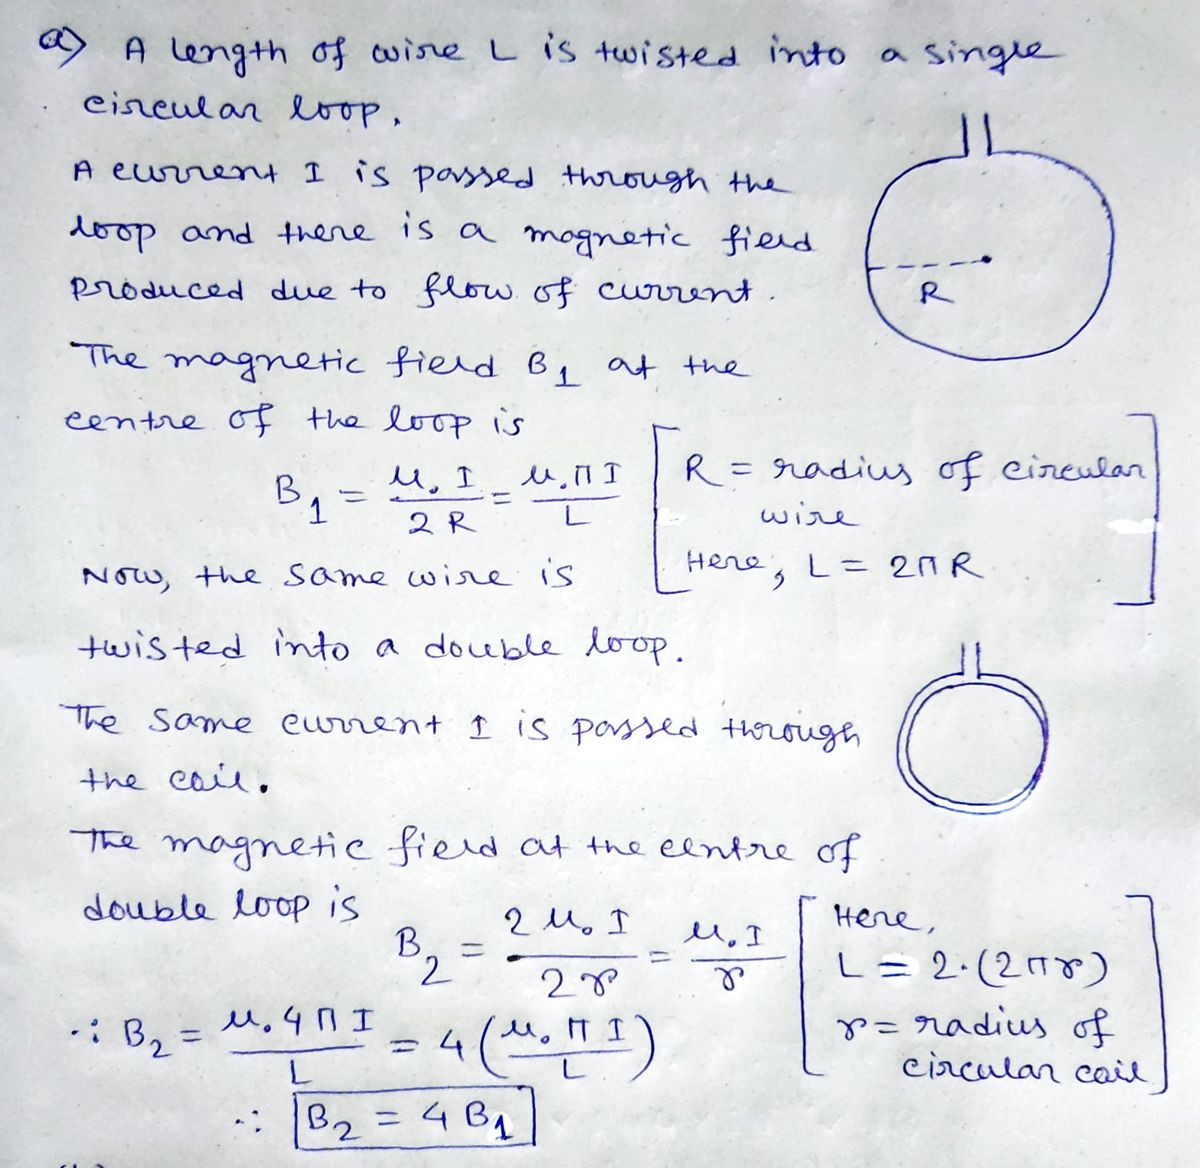 a) A length of wire L is twisted into a single
circular loop.
A current I is passed through the
loop and there is a magnetic field
produced due to flow of current.
R
The magnetic field B₁ at the
centre of the loop is
B₁ = μ₀ I / 2 R = μ₀ Π I / L
[ R = radius of circular
wire
Here, L = 2Π R ]
Now, the same wire is
twisted into a double loop.
The same current I is passed through
the coil.
The magnetic field at the centre of
double loop is
B₂ = 2 μ₀ I / 2 r = μ₀ I / r
[ Here,
L = 2·(2Πr)
r = radius of
circular coil ]
∴ B₂ = μ₀ 4 Π I / L = 4 (μ₀ Π I / L)
∴ B₂ = 4 B₁